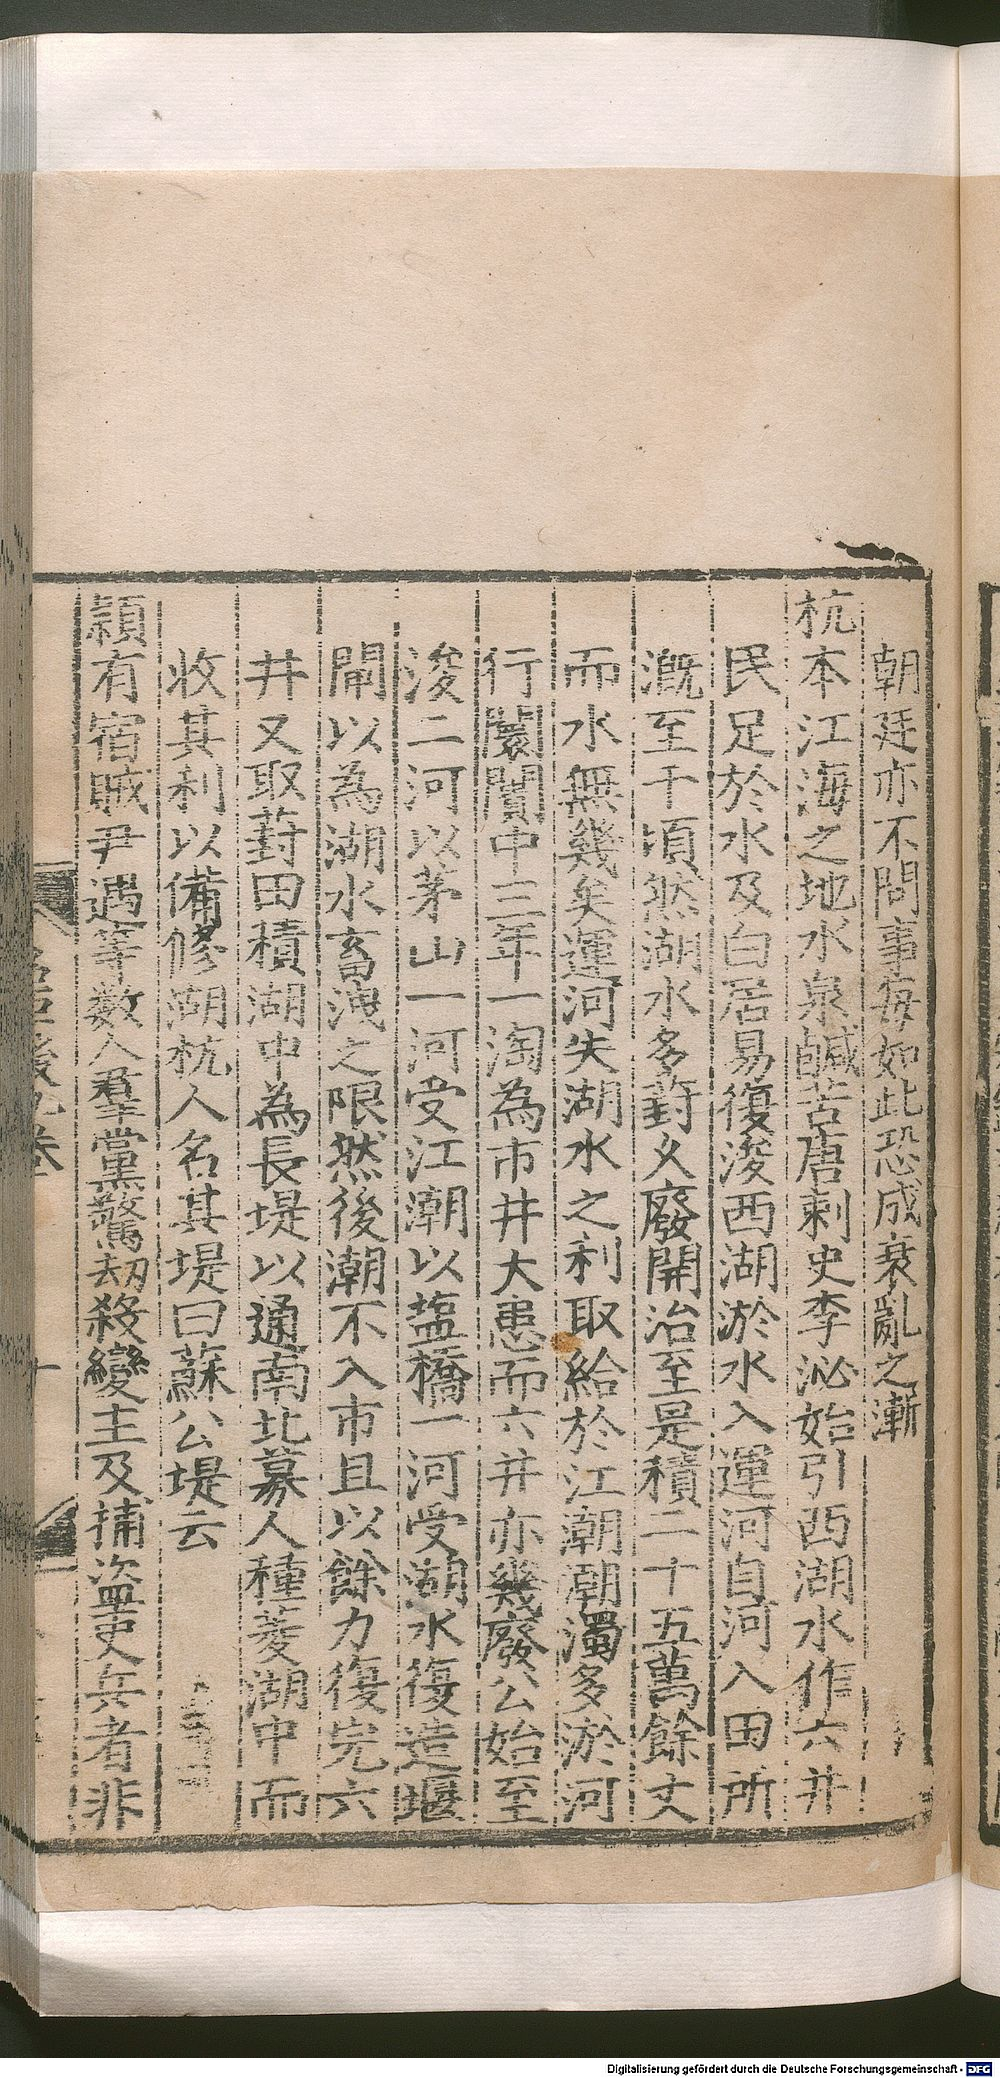 朝廷亦不問事每如此恐成衰亂之漸
杭本江海之地水泉鹹苦唐刺史李泌始引西湖水作六井
民足於水及白居易復浚西湖淤水入運河自河入田所
溉至千頃然湖水多葑久廢開治至是積二十五萬餘丈
而水無幾矣運河失湖水之利取給於江潮潮濁多淤河
行闤闠中三年一淘為市井大患而六井亦幾廢公始至
浚二河以茅山一河受江潮以塩橋一河受湖水復造堰
閘以為湖水畜洩之限然後潮不入市且以餘力復完六
井又取葑田積湖中為長堤以通南北募人種菱湖中而
收其利以備修湖杭人名其堤曰蘇公堤云
潁有宿賊尹遇等數人羣黨驚刼殺變主及捕盜吏兵者非
Digitalisierung gefördert durch die Deutsche Forschungsgemeinschaft - DFG